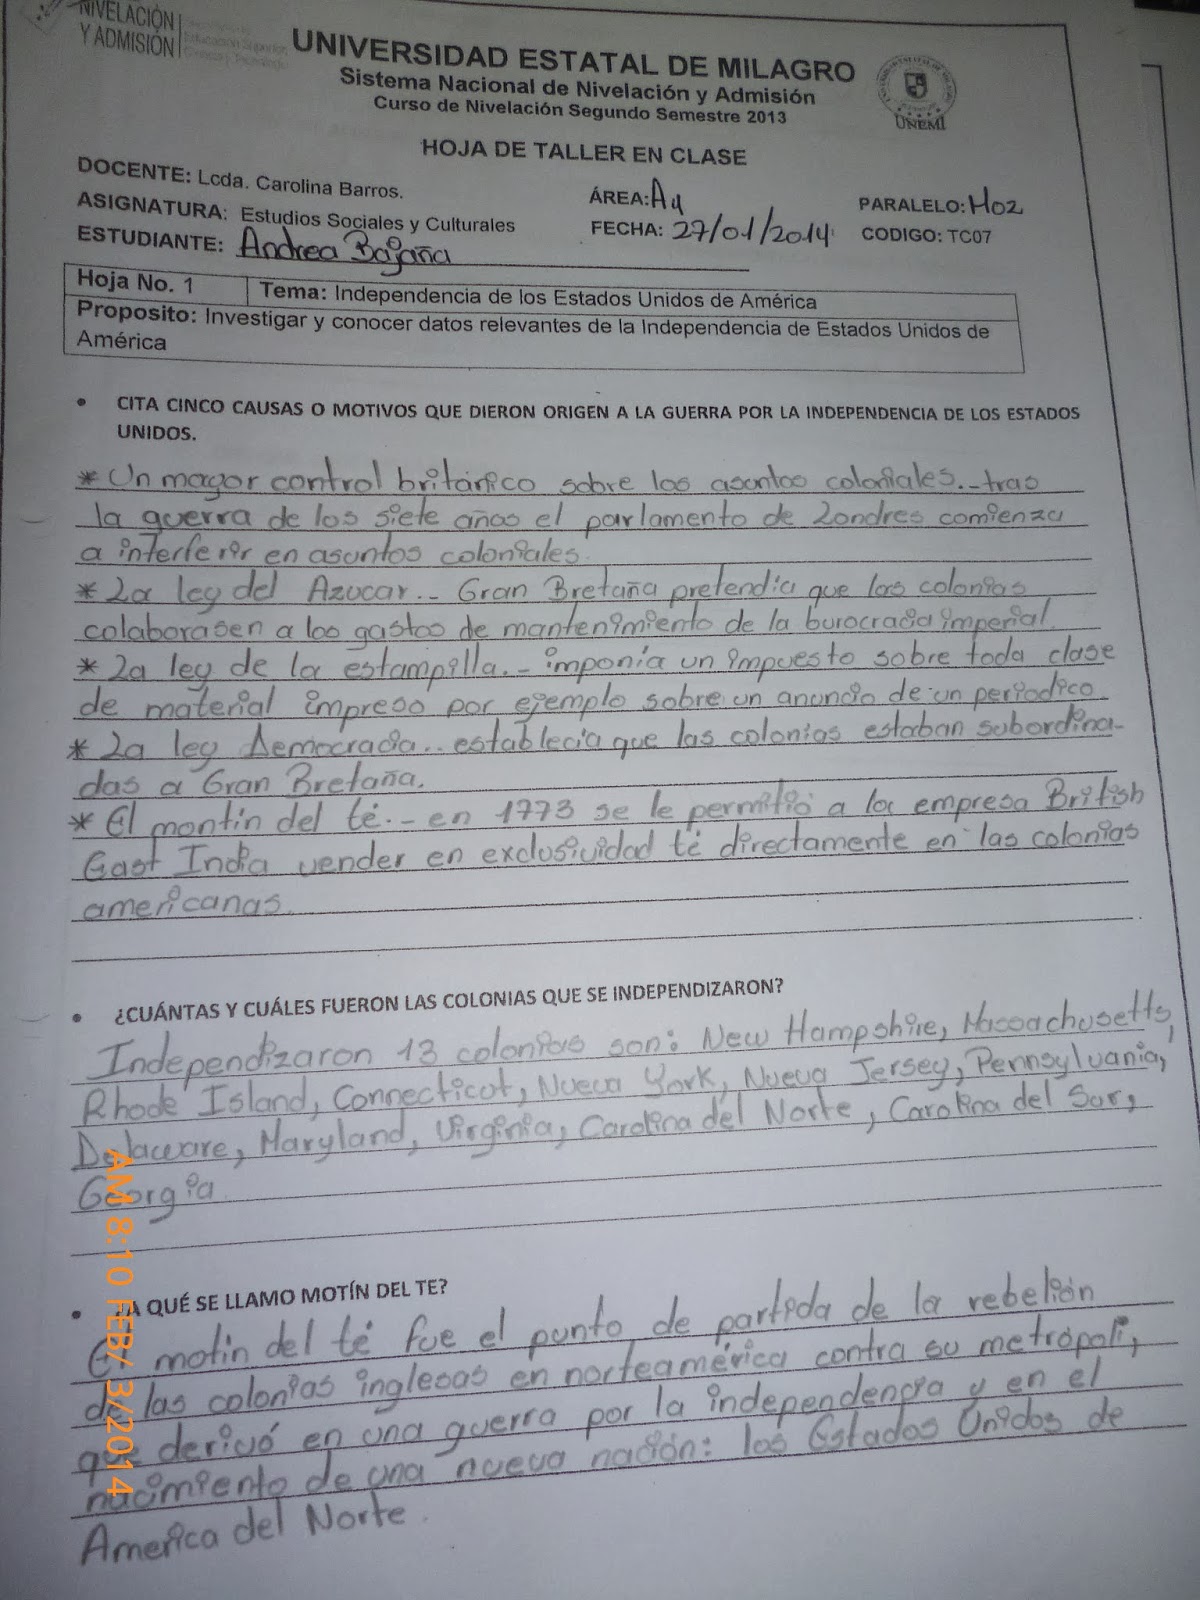 NIVELACIÓN
Y ADMISIÓN
UNIVERSIDAD ESTATAL DE MILAGRO
Sistema Nacional de Nivelación y Admisión
Curso de Nivelación Segundo Semestre 2013
UNEMI
HOJA DE TALLER EN CLASE
DOCENTE: Lcda. Carolina Barros. ÁREA: A4 PARALELO: H02
ASIGNATURA: Estudios Sociales y Culturales FECHA: 27/01/2014 CODIGO: TC07
ESTUDIANTE: Andrea Bajaña
Hoja No. 1 Tema: Independencia de los Estados Unidos de América
Proposito: Investigar y conocer datos relevantes de la Independencia de Estados Unidos de
América
• CITA CINCO CAUSAS O MOTIVOS QUE DIERON ORIGEN A LA GUERRA POR LA INDEPENDENCIA DE LOS ESTADOS
UNIDOS.
* Un mayor control británico sobre los asuntos coloniales.- tras
la guerra de los siete años el parlamento de Londres comienza
a interferir en asuntos coloniales.
* La ley del Azucar.- Gran Bretaña pretendia que las colonias
colaborasen a los gastos de mantenimiento de la burocracia imperial.
* La ley de la estampilla.- imponía un impuesto sobre toda clase
de material impreso por ejemplo sobre un anuncio de un periodico
* La ley Democracia.. establecia que las colonias estaban subordina-
das a Gran Bretaña.
* El montin del té.- en 1773 se le permitió a la empresa British
East India vender en exclusividad té directamente en las colonias
americanas.
• ¿CUÁNTAS Y CUÁLES FUERON LAS COLONIAS QUE SE INDEPENDIZARON?
Independizaron 13 colonias son: New Hampshire, Massachusetts,
Rhode Island, Connecticut, Nueva York, Nueva Jersey, Pennsylvania,
Delaware, Maryland, Virginia, Carolina del Norte, Carolina del Sur,
Georgia
• ¿A QUÉ SE LLAMO MOTÍN DEL TE?
El motin del té fue el punto de partida de la rebelión
de las colonias inglesas en norteamérica contra su metrópoli,
que derivó en una guerra por la independencia y en el
nacimiento de una nueva nación: los Estados Unidos de
America del Norte.
AM 8:10 FEB/ 3/2014